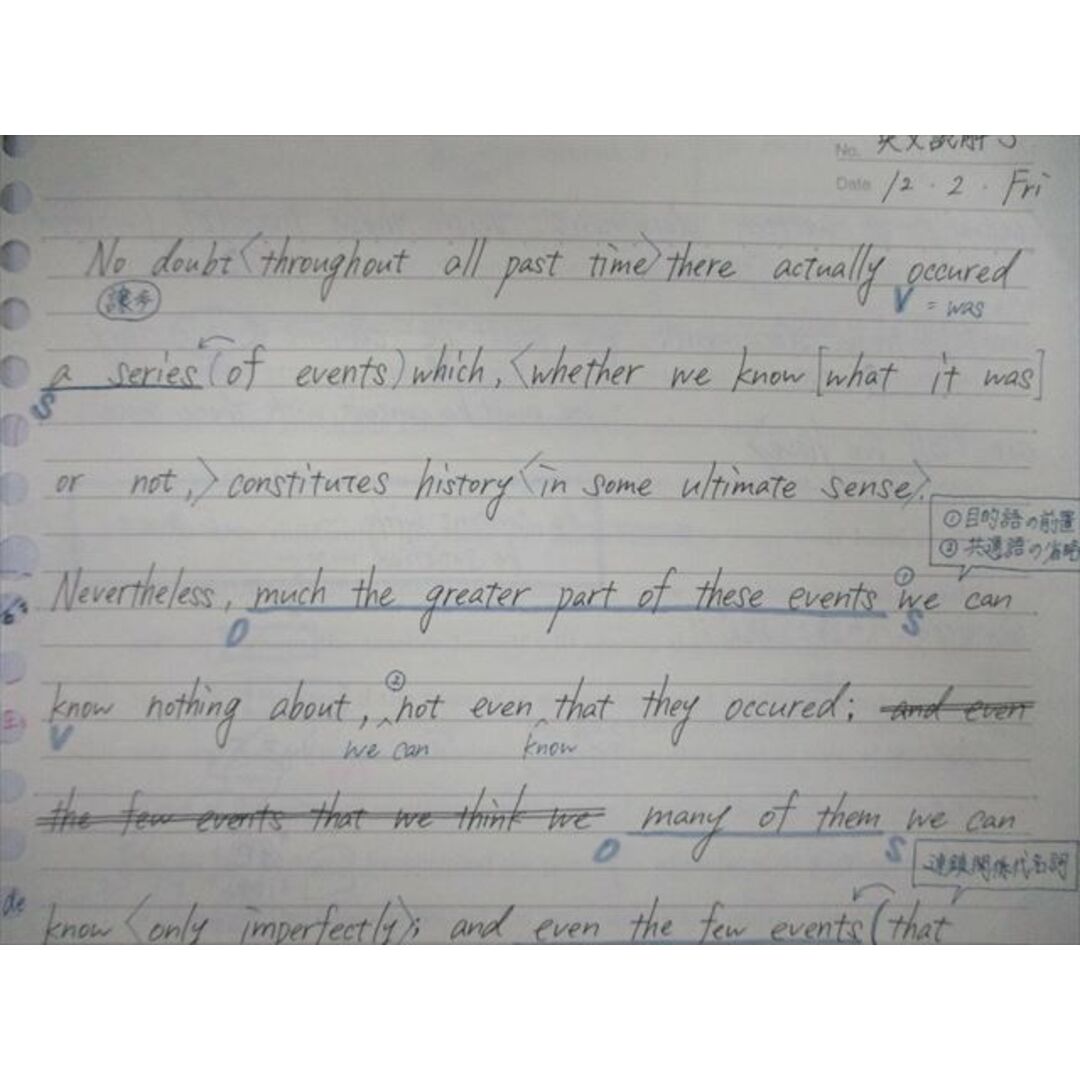 No. 英文読解 S
Date 12 . 2 . Fri
No doubt〈throughout all past time〉there actually occured
譲歩
V = was
a series (of events) which,〈whether we know [what it was]
S
or not,〉constitutes history〈in some ultimate sense〉.
①目的語の前置
②共通語の省略
Nevertheless, much the greater part of these events ①we can
O S
know nothing about, ②not even that they occured; and even
V we can know
the few events that we think we many of them we can
O S
連鎖関係代名詞
know〈only imperfectly〉; and even the few events (that